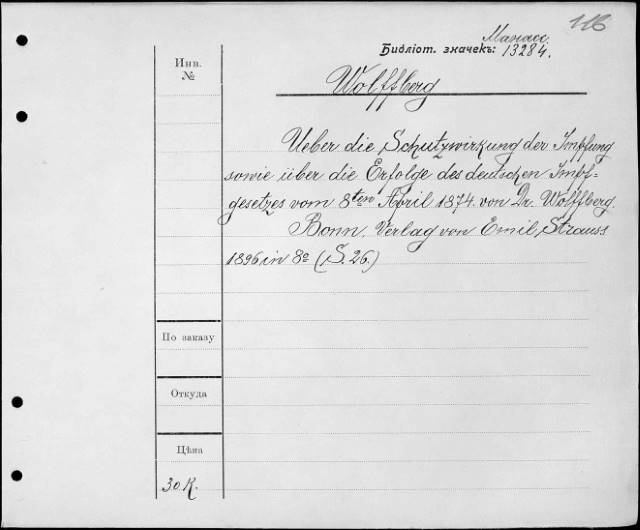 116
Манасс.
Библіот. значекъ: 13284.
Инв.
№
Wolffberg
Ueber die Schutzwirkung der Impfung
sowie über die Erfolge des deutschen Impf-
gesetzes vom 8ten April 1874. von Dr. Wolffberg.
Bonn. Verlag von Emil Strauss
1896 in 8º (S. 26.)
По заказу
Откуда
Цѣна
30 К.